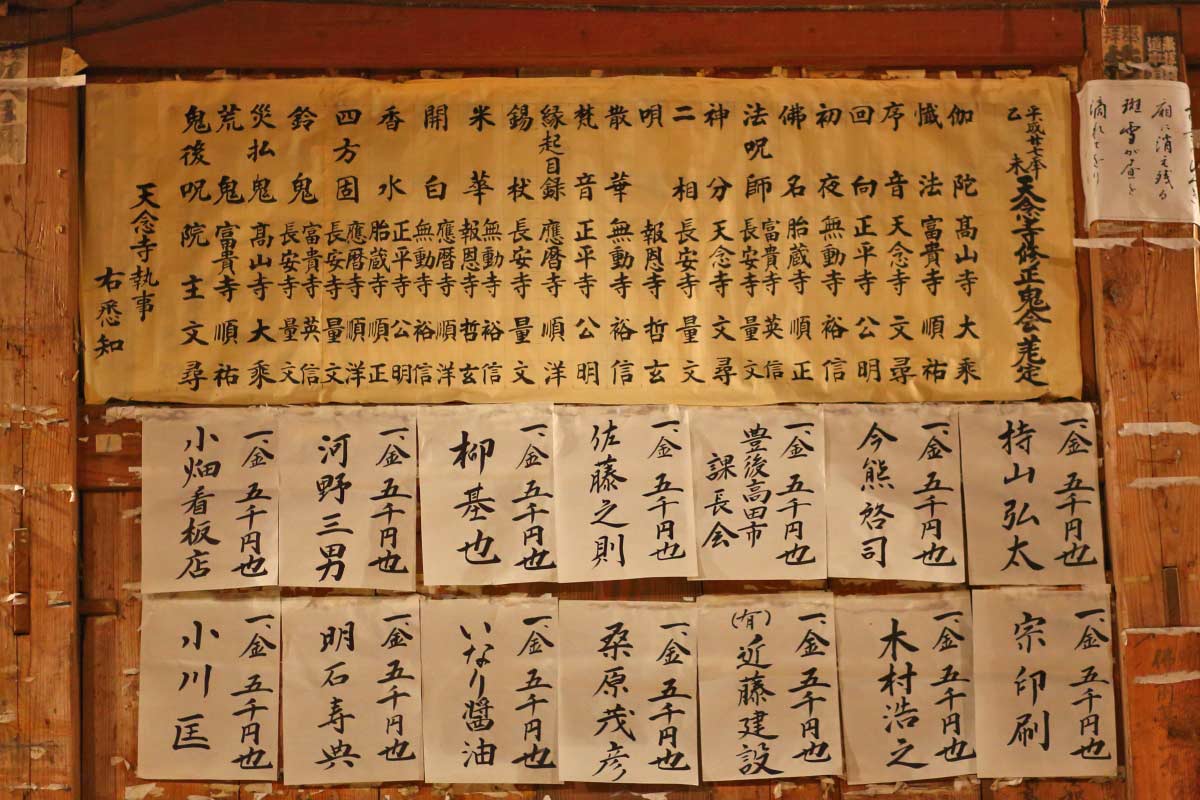 平成廿七年
乙未
天念寺修正鬼会差定
伽陀 高山寺 大乘
懺法 富貴寺 順祐
序音 天念寺 文尋
回向 正平寺 公明
初夜 無動寺 裕信
佛名 胎蔵寺 順正
法呪師 富貴寺 英信
長安寺 量文
神分 天念寺 文尋
二相 長安寺 量文
唄 報恩寺 哲玄
散華 無動寺 裕信
梵音 正平寺 公明
縁起目録 應暦寺 順洋
錫杖 長安寺 量文
米華 無動寺 裕信
報恩寺 哲玄
開白 應暦寺 順洋
無動寺 裕信
香水 正平寺 公明
胎蔵寺 順正
四方固 應暦寺 順洋
長安寺 量文
鈴鬼 富貴寺 英信
長安寺 量文
災払鬼 高山寺 大乘
荒鬼 富貴寺 順祐
鬼後呪 院主 文尋
天念寺執事
右悉知
厠に消え残る
斑雪が昼を
滴れてをり
一、金 五千円也
持山弘太
一、金 五千円也
今熊啓司
一、金 五千円也
豊後高田市
課長会
一、金 五千円也
佐藤之則
一、金 五千円也
柳基也
一、金 五千円也
河野三男
一、金 五千円也
小畑看板店
一、金 五千円也
宗印刷
一、金 五千円也
木村浩之
一、金 五千円也
(有)近藤建設
一、金 五千円也
桑原茂彦
一、金 五千円也
いなり醤油
一、金 五千円也
明石寿典
一、金 五千円也
小川匡